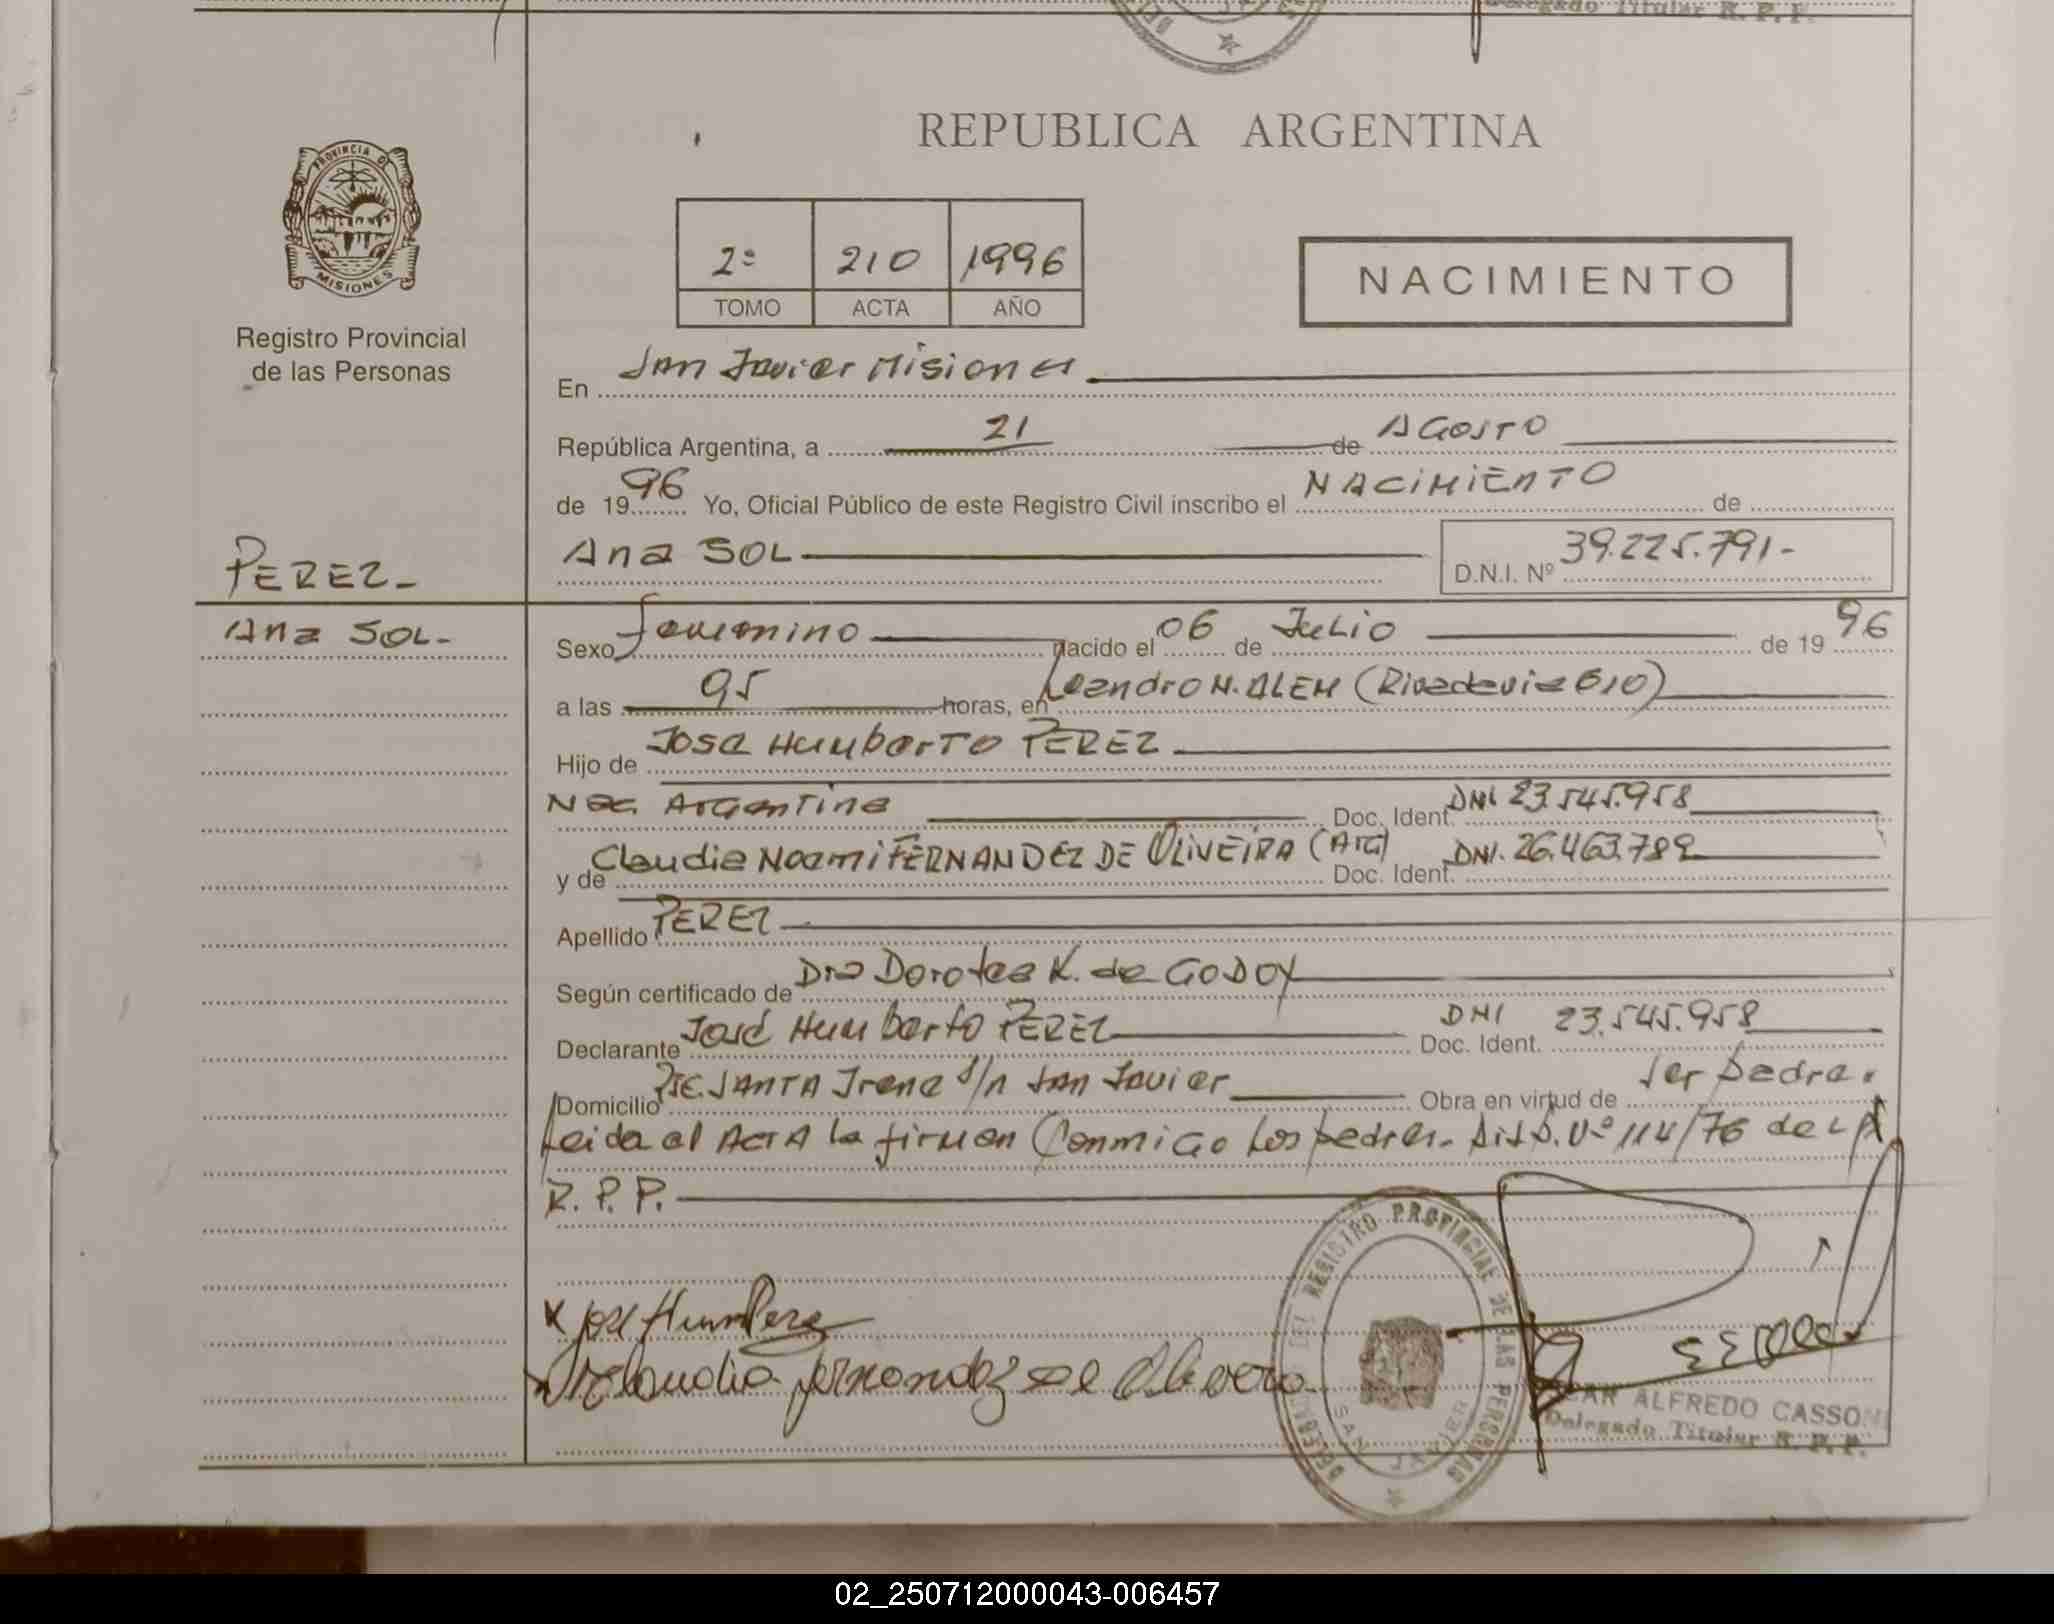 Delegado Titular R. P. P.
REPUBLICA ARGENTINA
PROVINCIA DE MISIONES
Registro Provincial
de las Personas
2º 210 1996
TOMO ACTA AÑO
NACIMIENTO
En San Javier Misiones
República Argentina, a 21 de AGOSTO
de 1996 Yo, Oficial Público de este Registro Civil inscribo el NACIMIENTO de
PEREZ- Ana SOL D.N.I. Nº 39.225.791-
Ana SOL- Sexo femenino nacido el 06 de Julio de 1996
a las 95 horas, en Leandro N. ALEM (Rivadavia 610)
Hijo de José Humberto PEREZ
Nac. Argentina Doc. Ident. DNI 23.545.958
y de Claudia Noemi FERNANDEZ DE OLIVEIRA (ARG) Doc. Ident. DNI. 26.463.789
Apellido PEREZ
Según certificado de Dra Dorotea K. de GODOY
Declarante José Humberto PEREZ Doc. Ident. DNI 23.545.958
Domicilio SANTA Irene S/n San Javier Obra en virtud de ser padre.
Leida el ACTA la firman Conmigo Los padres. Disp. Nº 114/76 de LA
R. P. P.
x José Hum Perez
Claudia fernandez de
REGISTRO PROVINCIAL DE LAS PERSONAS
SAN JAVIER
ALFREDO CASSONI
Delegado Titular R. P. P.
02_250712000043-006457